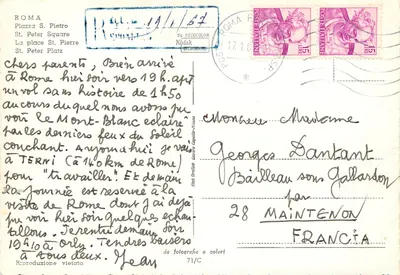 ROMA
Piazza S. Pietro
St. Peter Square
La place St. Pierre
St. Peter Platz
chers parents, Bien arrivé
à Rome hier soir vers 19h. après
un vol sans histoire de 1h50
au cours duquel nous avons pu
voir le Mont-Blanc éclairé
par les derniers feux du soleil
couchant. Aujourd'hui je vais
à TERNI (à 110km de Rome)
pour "travailler". Et demain
la journée est reservée à la
visite de Rome dont j'ai déjà
pu voir hier soir quelques echan-
tillons. Je rentre demain soir
19h10 à Orly. Tendres baisers
à tous deux. Jean
Riproduzione vietata
19/1/67
Kodak
ROMA
ITALIANE
ITALIANE
Monsieur Madame
Georges Dantant
Bailleau sous Gallardon
par
28 MAINTENON
FRANCIA
da fotografia a colori
71/C